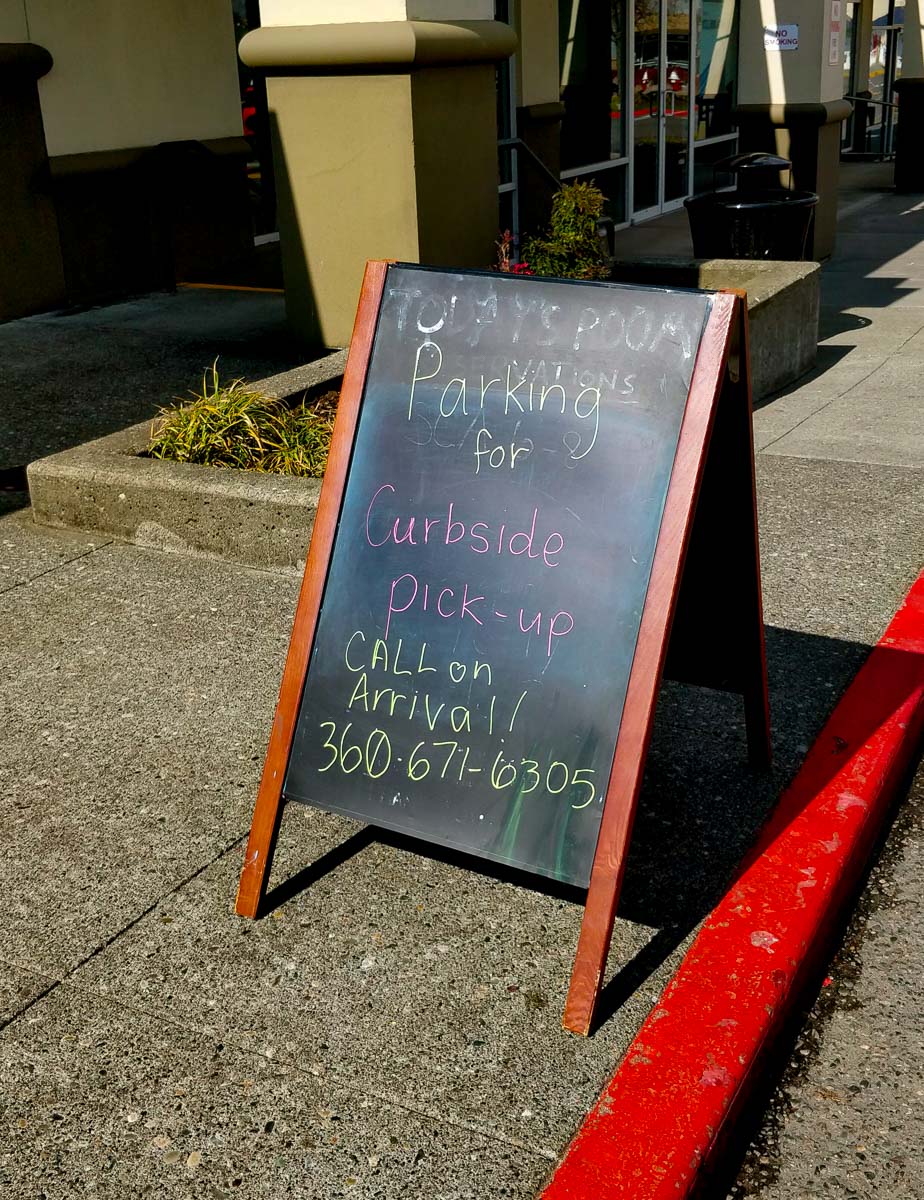 NO
SMOKING
TODAY'S ROOM
RESERVATIONS
Parking
for
Curbside
pick-up
CALL on
Arrival!
360-671-6305